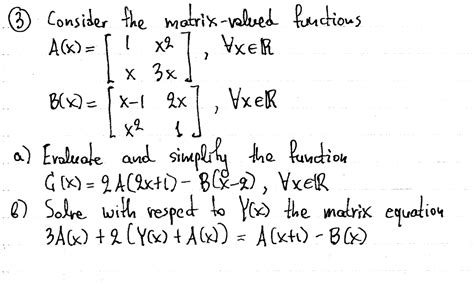 ③ Consider the matrix-valued functions
A(x) = [ 1 x2 ; x 3x ] , ∀x∈ℝ
B(x) = [ x-1 2x ; x2 1 ] , ∀x∈ℝ
a) Evaluate and simplify the function
G(x) = 2A(2x+1) - B(x-2) , ∀x∈ℝ
b) Solve with respect to Y(x) the matrix equation
3A(x) + 2(Y(x) + A(x)) = A(x+1) - B(x)